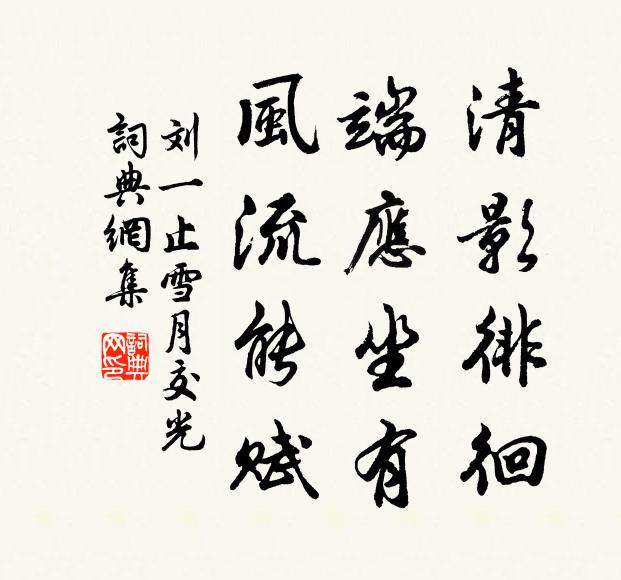 清影徘徊
端應坐有
風流能賦
刘一止雪月交光
詞典網集
詞典网印